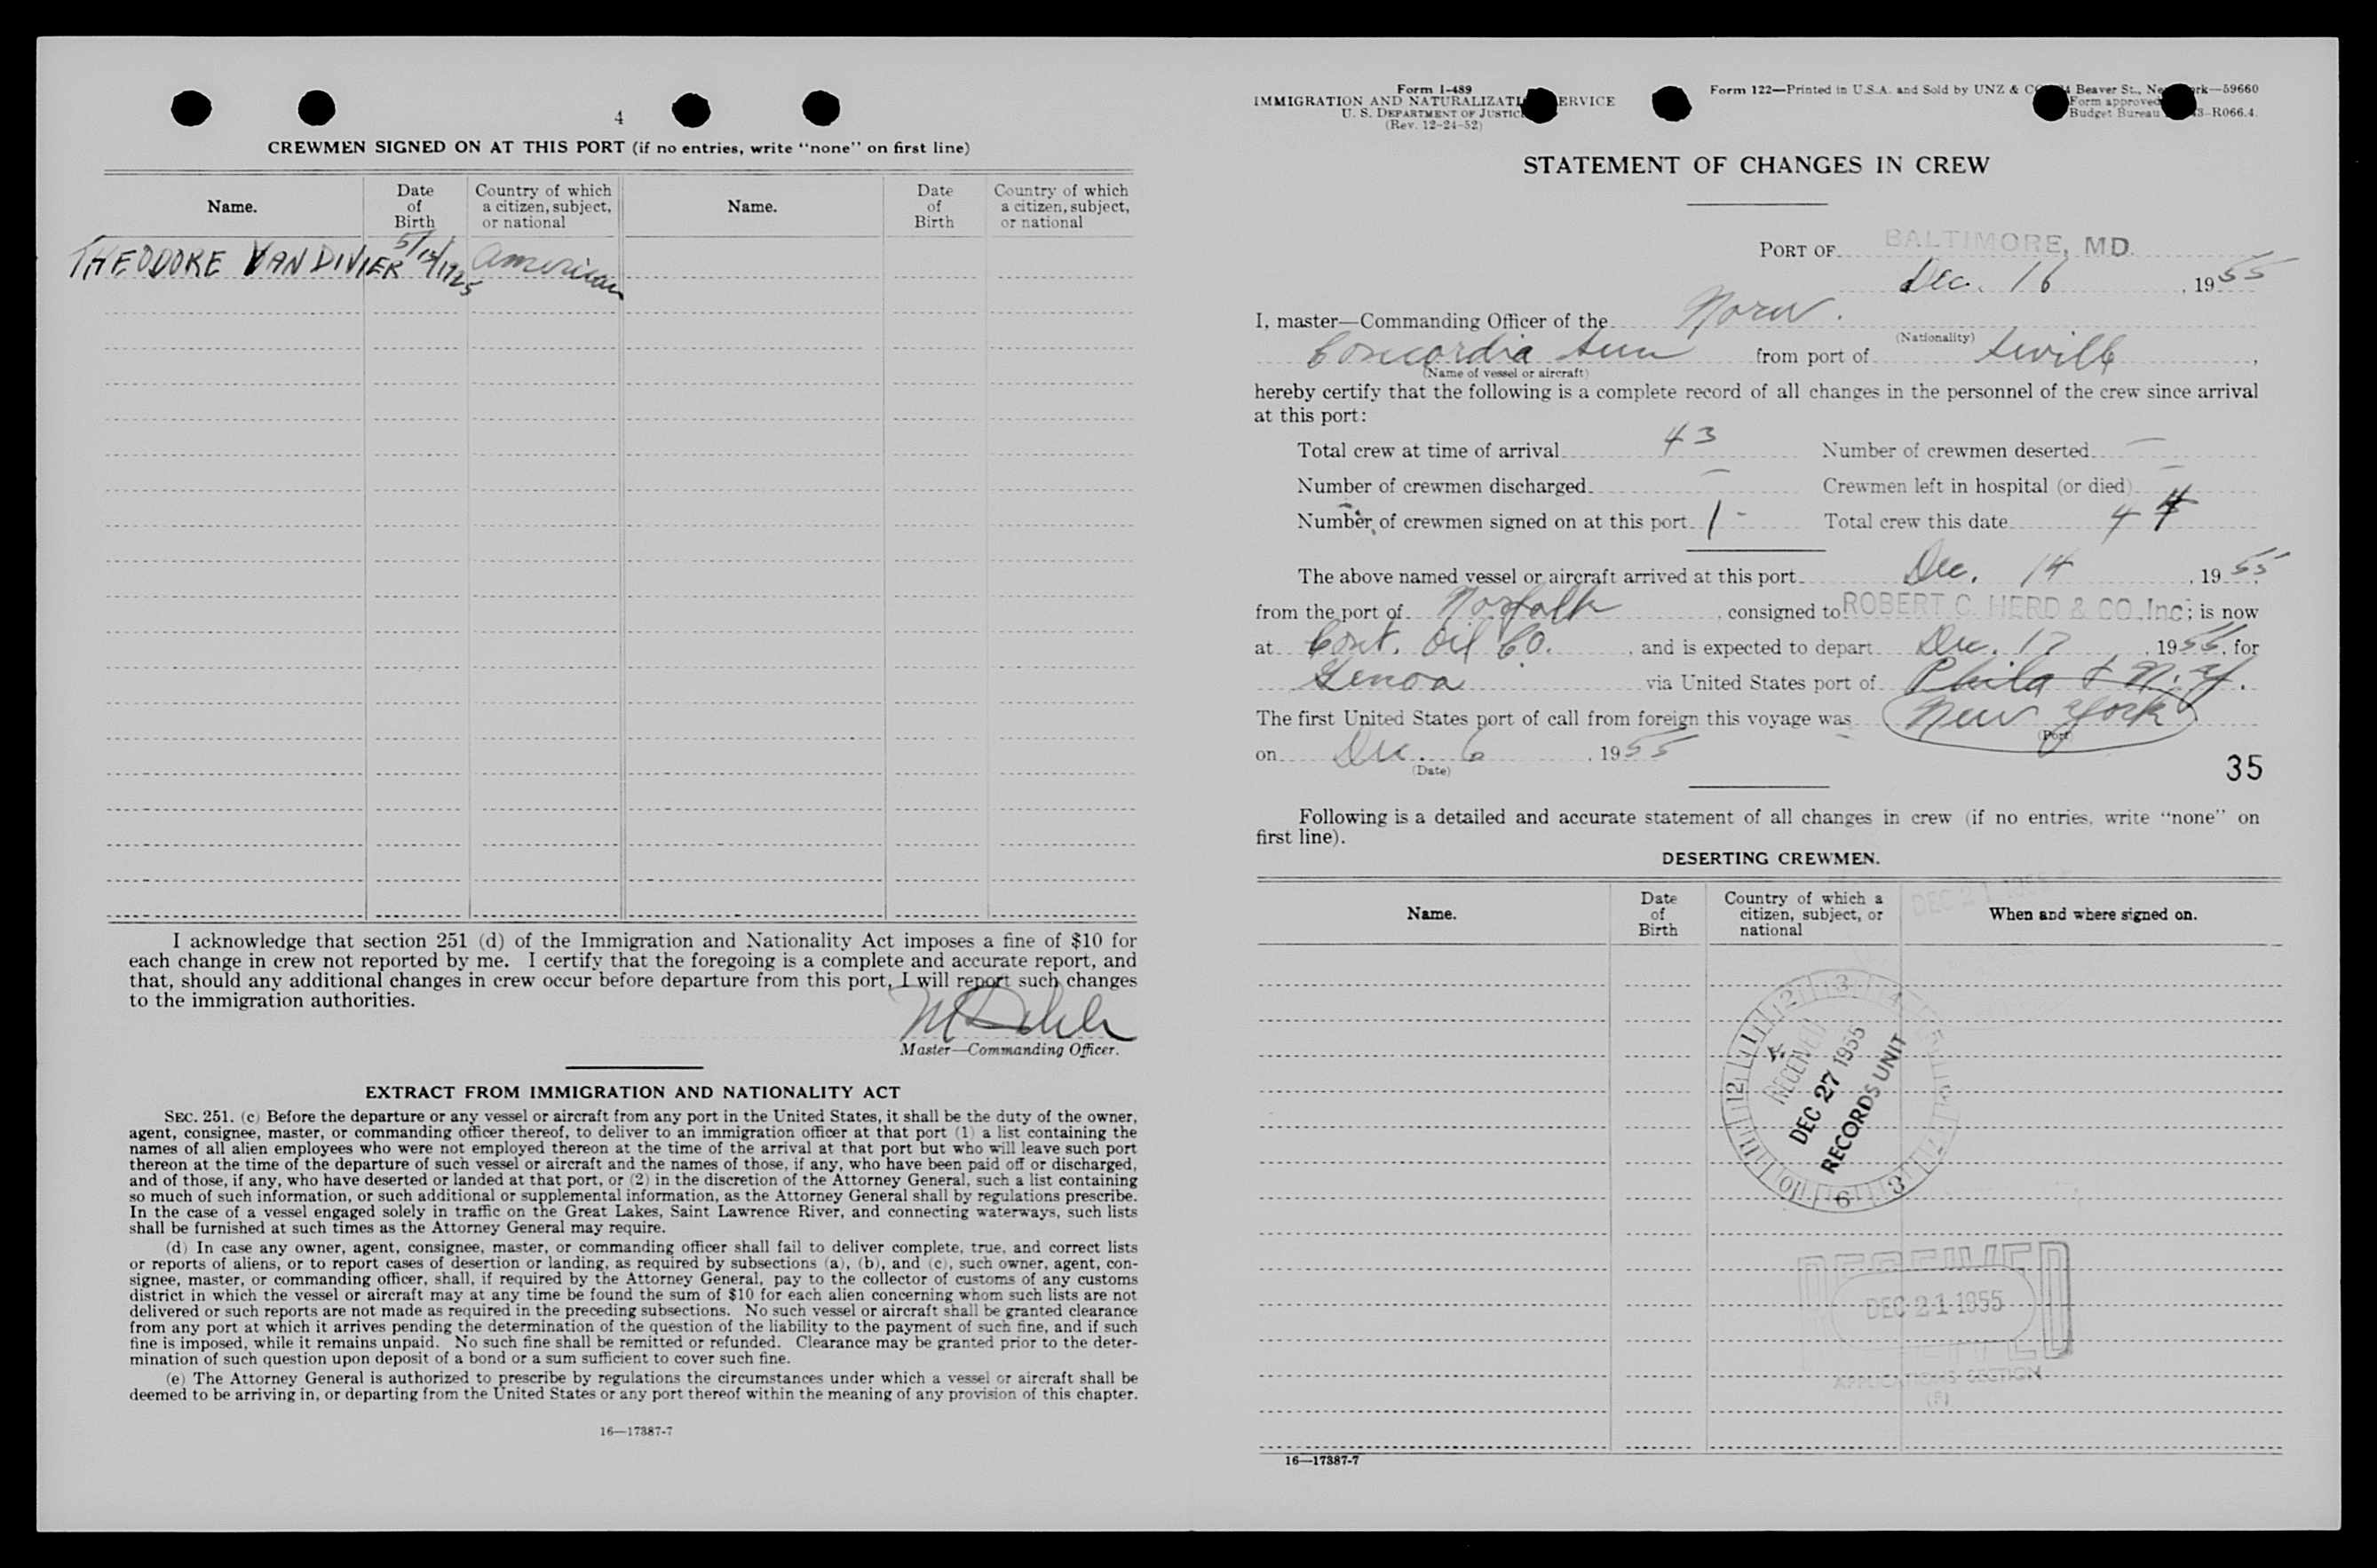 4
CREWMEN SIGNED ON AT THIS PORT (if no entries, write "none" on first line)
Name. Date of Birth Country of which a citizen, subject, or national Name. Date of Birth Country of which a citizen, subject, or national
THEODORE VANDIVIER 5/12/1925 American
I acknowledge that section 251 (d) of the Immigration and Nationality Act imposes a fine of $10 for
each change in crew not reported by me. I certify that the foregoing is a complete and accurate report, and
that, should any additional changes in crew occur before departure from this port, I will report such changes
to the immigration authorities.
Master—Commanding Officer.
EXTRACT FROM IMMIGRATION AND NATIONALITY ACT
SEC. 251. (c) Before the departure or any vessel or aircraft from any port in the United States, it shall be the duty of the owner,
agent, consignee, master, or commanding officer thereof, to deliver to an immigration officer at that port (1) a list containing the
names of all alien employees who were not employed thereon at the time of the arrival at that port but who will leave such port
thereon at the time of the departure of such vessel or aircraft and the names of those, if any, who have been paid off or discharged,
and of those, if any, who have deserted or landed at that port, or (2) in the discretion of the Attorney General, such a list containing
so much of such information, or such additional or supplemental information, as the Attorney General shall by regulations prescribe.
In the case of a vessel engaged solely in traffic on the Great Lakes, Saint Lawrence River, and connecting waterways, such lists
shall be furnished at such times as the Attorney General may require.
(d) In case any owner, agent, consignee, master, or commanding officer shall fail to deliver complete, true, and correct lists
or reports of aliens, or to report cases of desertion or landing, as required by subsections (a), (b), and (c), such owner, agent, con-
signee, master, or commanding officer, shall, if required by the Attorney General, pay to the collector of customs of any customs
district in which the vessel or aircraft may at any time be found the sum of $10 for each alien concerning whom such lists are not
delivered or such reports are not made as required in the preceding subsections. No such vessel or aircraft shall be granted clearance
from any port at which it arrives pending the determination of the question of the liability to the payment of such fine, and if such
fine is imposed, while it remains unpaid. No such fine shall be remitted or refunded. Clearance may be granted prior to the deter-
mination of such question upon deposit of a bond or a sum sufficient to cover such fine.
(e) The Attorney General is authorized to prescribe by regulations the circumstances under which a vessel or aircraft shall be
deemed to be arriving in, or departing from the United States or any port thereof within the meaning of any provision of this chapter.
16—17387-7
Form I-489
IMMIGRATION AND NATURALIZATI ERVICE
U. S. DEPARTMENT OF JUSTIC
(Rev. 12-24-52)
Form 122—Printed in U.S.A. and Sold by UNZ & C Beaver St., Ne rk—59660
Form approved
Budget Bureau 3-R066.4.
STATEMENT OF CHANGES IN CREW
PORT OF BALTIMORE, MD.
Dec. 16, 1955
I, master—Commanding Officer of the Norw.
(Nationality)
Concordia Sun from port of Seville,
(Name of vessel or aircraft)
hereby certify that the following is a complete record of all changes in the personnel of the crew since arrival
at this port:
Total crew at time of arrival 43 Number of crewmen deserted —
Number of crewmen discharged — Crewmen left in hospital (or died) —
Number of crewmen signed on at this port 1 - Total crew this date 44
The above named vessel or aircraft arrived at this port Dec. 14, 1955
from the port of Norfolk, consigned to ROBERT C. HERD & CO. Inc; is now
at Cont. Oil Co., and is expected to depart Dec. 17, 1955, for
Genoa via United States port of Phila & N.Y.
The first United States port of call from foreign this voyage was New York
(Port)
on Dec. 6, 1955
(Date)
35
Following is a detailed and accurate statement of all changes in crew (if no entries, write "none" on
first line).
DESERTING CREWMEN.
Name. Date of Birth Country of which a citizen, subject, or national When and where signed on.
DEC 21 1955
RECEIVED
DEC 27 1955
RECORDS UNIT
12 1 2 3 4 5 6 7 8 9 10 11
RECEIVED
DEC 21 1955
APPLICATIONS SECTION
16—17387-7